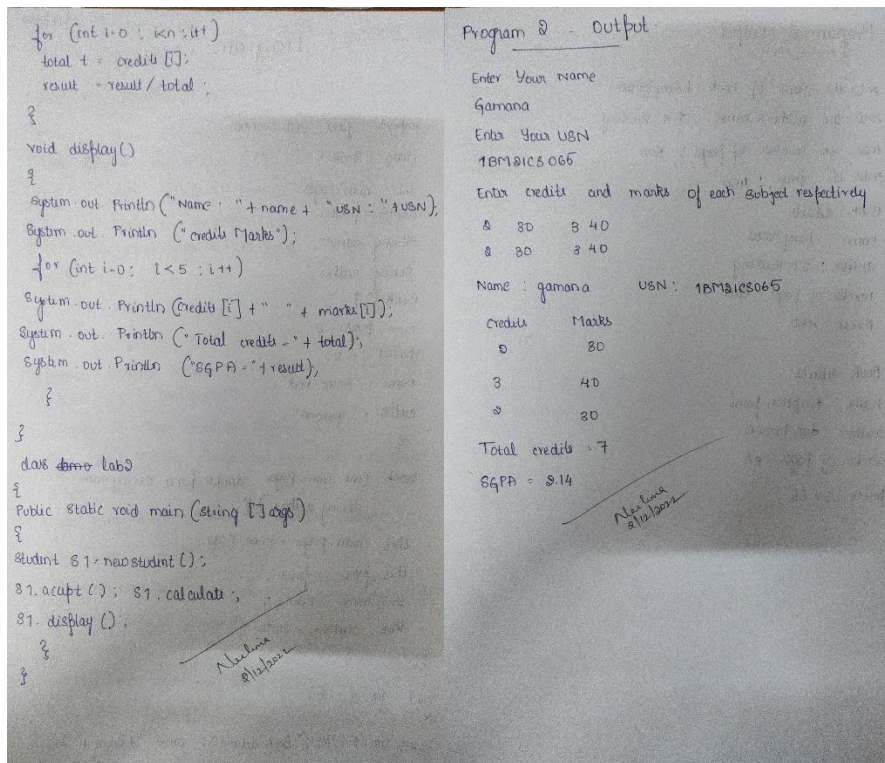 for (int i=0 ; i<n ; i++)
total + = credits [];
result = result / total ;
}
void display()
{
System.out. Println ("Name : "+ name + "USN : " + USN);
System.out. Println ("credits Marks");
for (int i=0; i<5 ; i++)
System.out. Println (credits [i] + " " + marks [i]);
System.out. Println ("Total credits = " + total);
System.out. Println ("SGPA = " + result);
}
}
class lab2
{
Public static void main (string [] args)
{
Student S1 = new student ();
S1. accept (); S1. calculate ;
S1. display () .
}
}
Neelima
2/12/2022
Program 2 Output
Enter Your Name
Gamana
Enter Your USN
1BM21CS065
Enter credits and marks of each subject respectively
2 30 3 40
2 30 3 40
Name : gamana USN : 1BM21CS065
Credits Marks
2 30
3 40
2 30
Total credits = 7
SGPA = 9.14
Neelima
2/12/2022